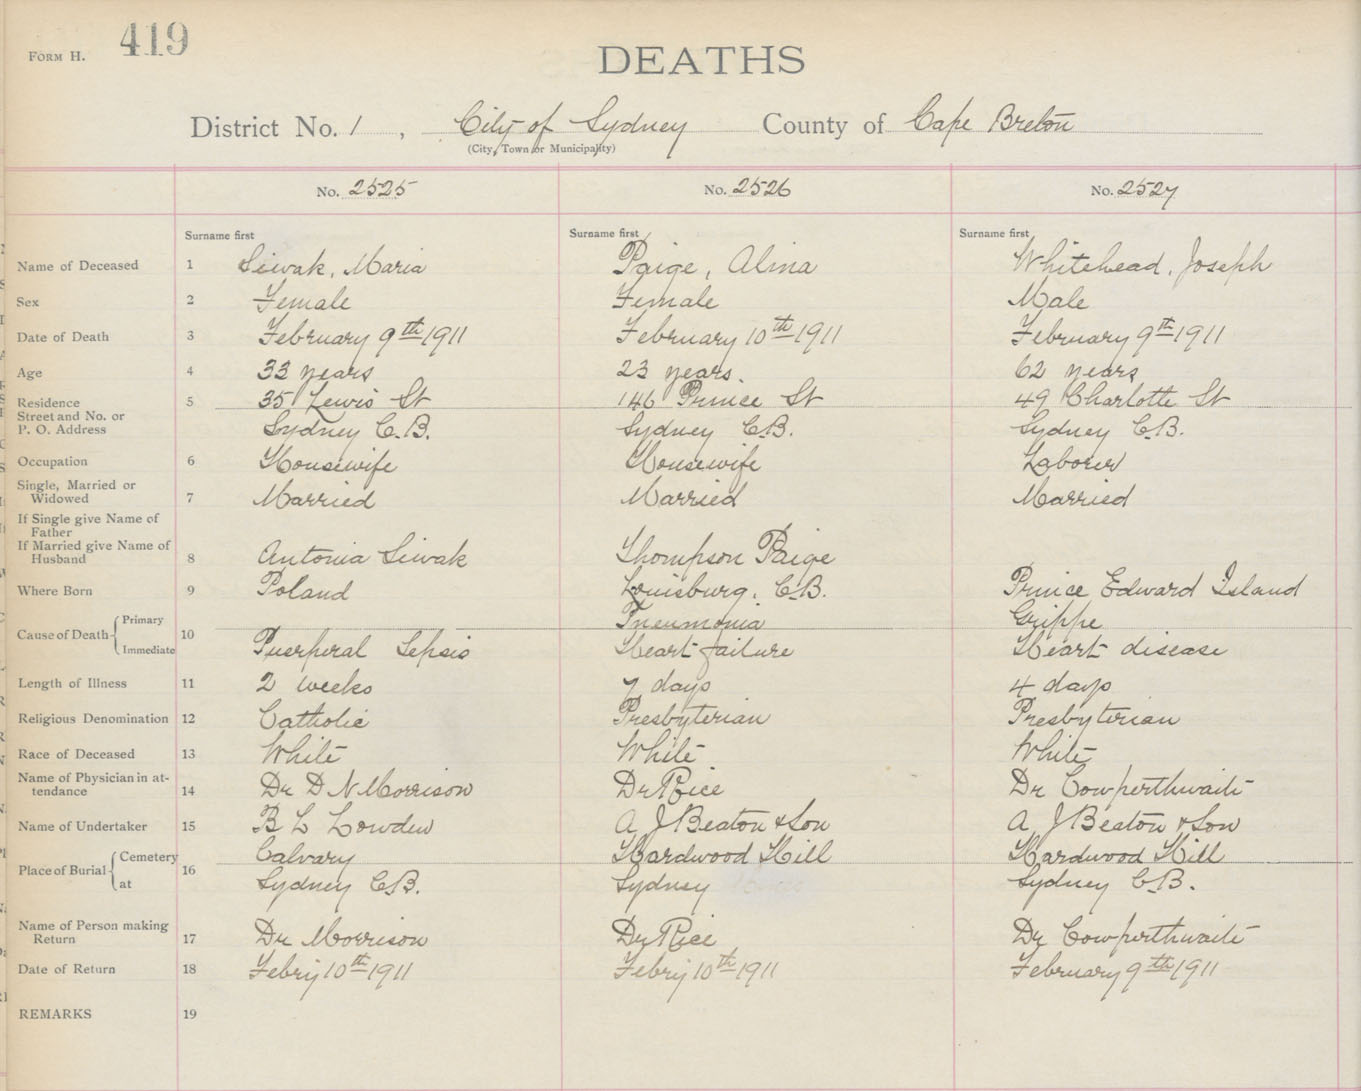 FORM H. 419
DEATHS
District No. 1, City of Sydney County of Cape Breton
(City, Town or Municipality)
No. 2525 No. 2526 No. 2527
Surname first Surname first Surname first
Name of Deceased 1 Siwak, Maria Paige, Alma Whitehead, Joseph
Sex 2 Female Female Male
Date of Death 3 February 9th 1911 February 10th 1911 February 9th 1911
Age 4 33 years 23 years. 62 years
Residence 5 35 Lewis St 146 Prince St 49 Charlotte St
Street and No. or
P. O. Address Sydney C.B. Sydney C.B. Sydney C.B.
Occupation 6 Housewife Housewife Laborer
Single, Married or
Widowed 7 Married Married Married
If Single give Name of
Father
If Married give Name of
Husband 8 Antonia Siwak Thompson Paige
Where Born 9 Poland Louisburg, C.B. Prince Edward Island
Cause of Death Primary Pneumonia Grippe
10 Immediate Puerperal Sepsis Heart failure Heart disease
Length of Illness 11 2 weeks 7 days 4 days
Religious Denomination 12 Catholic Presbyterian Presbyterian
Race of Deceased 13 White White White
Name of Physician in at-
tendance 14 Dr D N Morrison Dr Rice Dr Cowperthwaite
Name of Undertaker 15 B L Lowden A J Beaton & Son A J Beaton & Son
Place of Burial Cemetery Calvary Hardwood Hill Hardwood Hill
16 at Sydney C.B. Sydney Sydney C.B.
Name of Person making
Return 17 Dr Morrison Dr Rice Dr Cowperthwaite
Date of Return 18 Febry 10th 1911 Febry 10th 1911 February 9th 1911
REMARKS 19